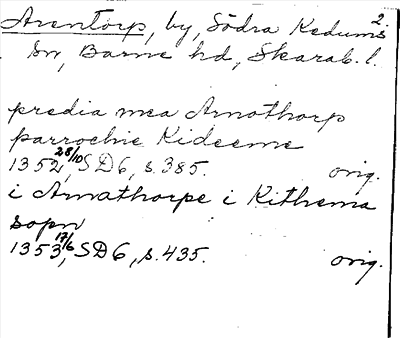 2.
Arentorp, by, Södra Kedums
sn, Barne hd, Skarab. l.
predia mea Arnathorp
parrochie Kideeme
1352 28/10, SD 6, s. 385. orig.
i Arnathorpe i Kithema
sopn
1353 17/6, SD 6, s. 435. orig.